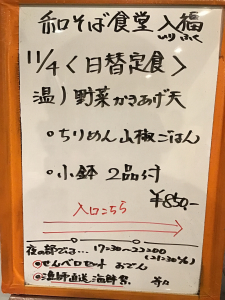 和そば食堂 入福
いり ふく
11/4 〈日替定食〉
温）野菜かきあげ天
○ちりめん山椒ごはん
○小鉢 2品付
¥850-
入口こちら
夜の部です… 17:30~22:00
(21:30 %)
○せんべロセット おでん
○漁師直送海鮮 等々